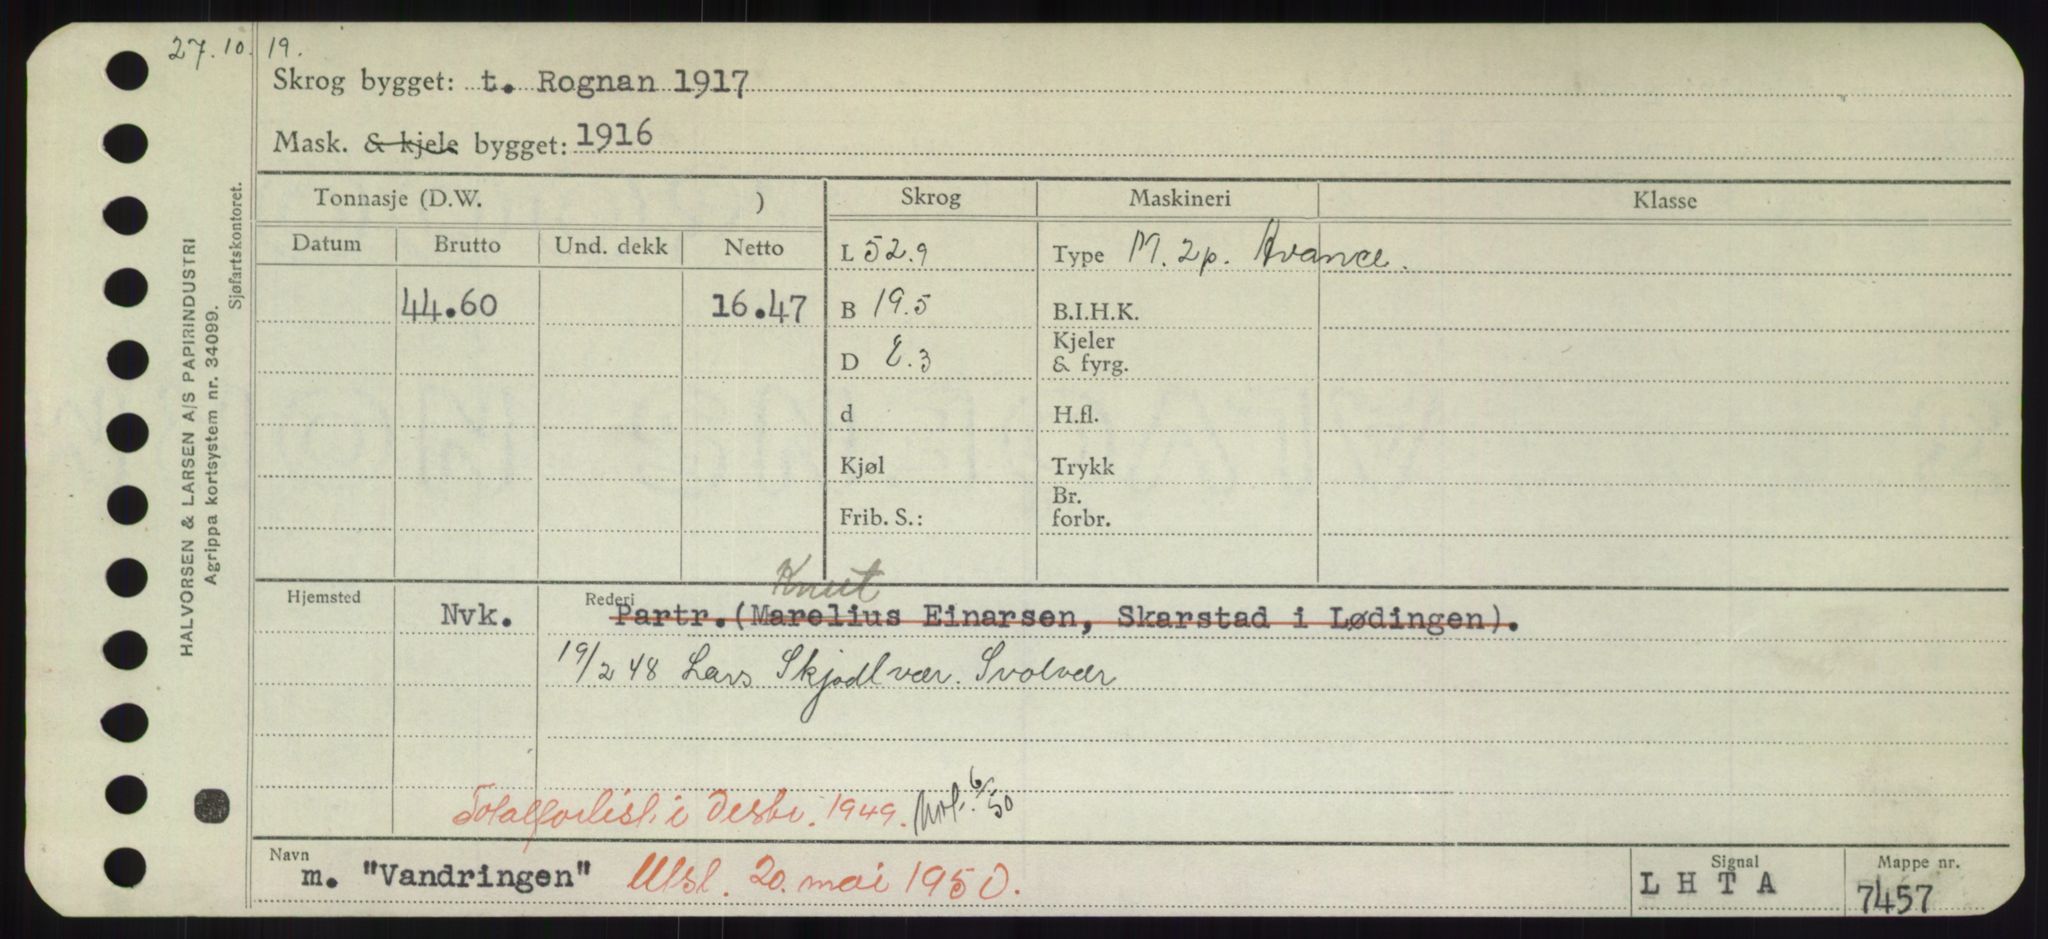 27.10.19.
Skrog bygget: t. Rognan 1917
Mask. & kjele bygget: 1916
HALVORSEN & LARSEN A/S PAPIRINDUSTRI
Agrippa kortsystem nr. 34099.
Sjøfartskontoret.
Tonnasje (D.W. ) Skrog Maskineri Klasse
Datum Brutto Und. dekk Netto
L 52.9 Type M. 2p. Avance.
44.60 16.47 B 19.5 B.I.H.K.
D 8.3 Kjeler & fyrg.
d H.fl.
Kjøl Trykk
Frib. S.: Br. forbr.
Knut
Hjemsted Nvk. Rederi Partr.(Marelius Einarsen, Skarstad i Lødingen).
19/2 48 Lars Skjodlvær. Svolvær
Totalforlist i Desbr. 1949. 6/50
Navn m. "Vandringen" Utsl. 20. mai 1950. Signal L H T A Mappe nr. 7457